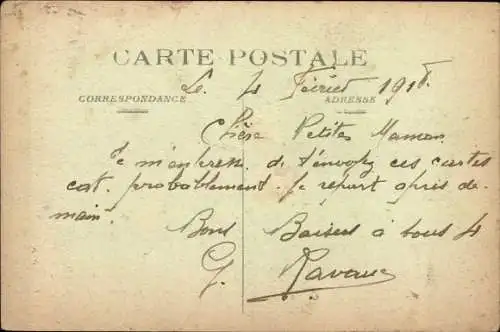 CARTE POSTALE
Le 4 Février 191
CORRESPONDANCE ADRESSE
Chère Petite Maman
Je m'empresse de t'envoyer ces cartes
car probablement je repart après de
main.
Bons Baisers à tous 4
G. Ravaux